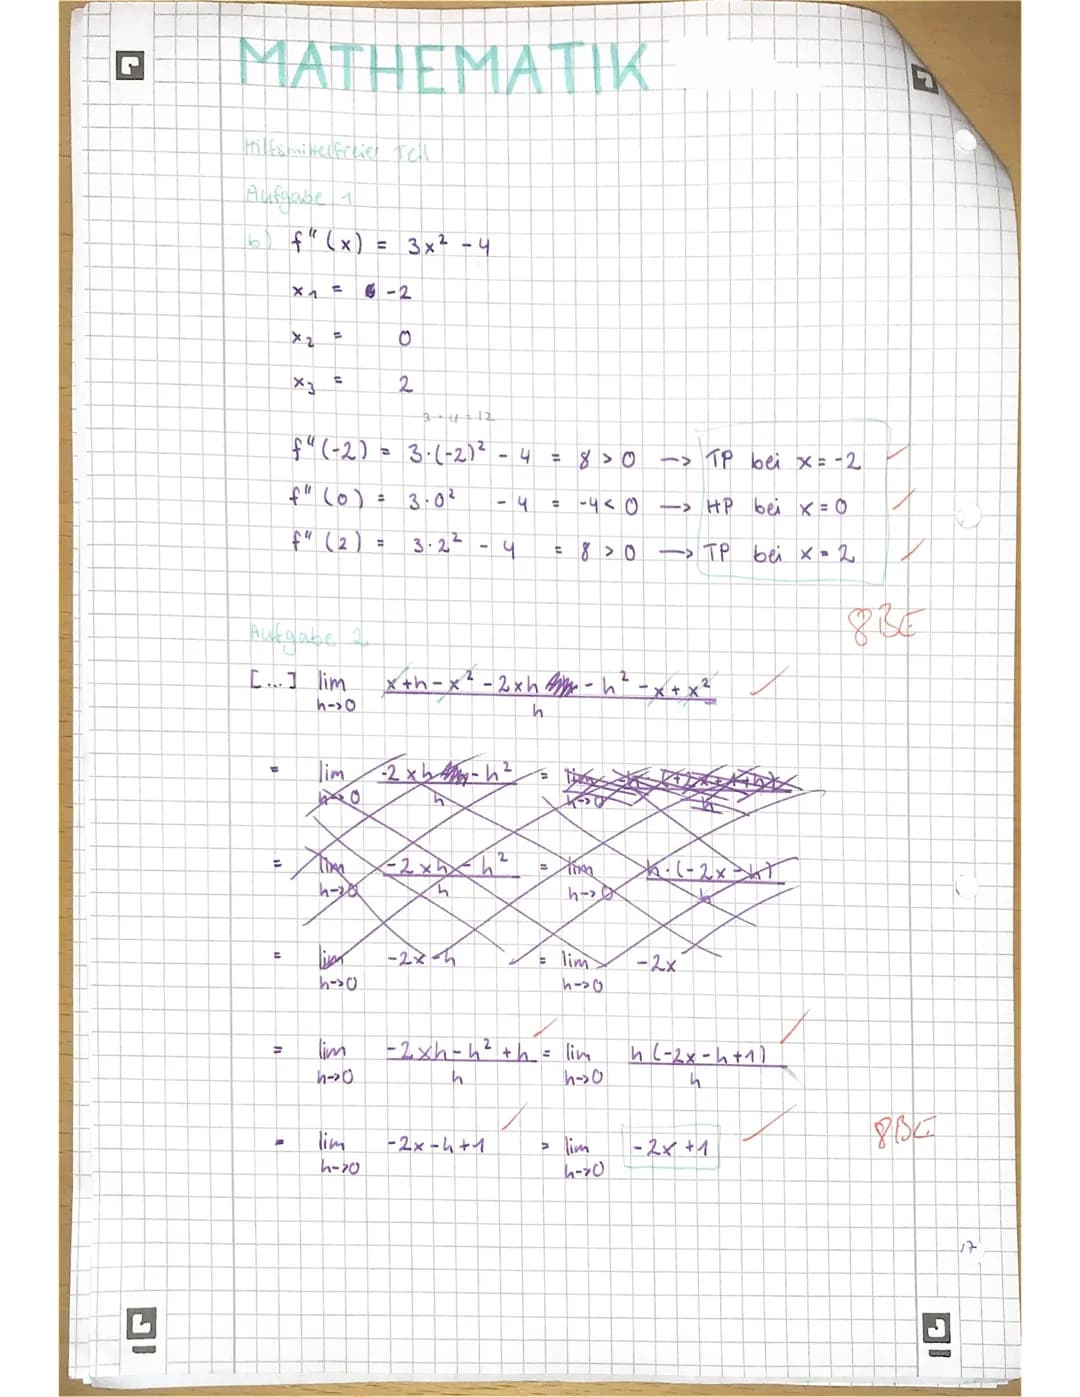 MATHEMATIK
Hilfsmittelfreier Teil
Aufgabe 1
b) f''(x) = 3x² - 4
x₁ = -2
x₂ = 0
x₃ = 2
3·4=12
f''(-2) = 3·(-2)² - 4 = 8 > 0 —> TP bei x = -2
f''(0) = 3·0² - 4 = -4 < 0 —> HP bei x = 0
f''(2) = 3·2² - 4 = 8 > 0 —> TP bei x = 2
8BE
Aufgabe 2
[...] lim h->0 (x+h-x²-2xh-h²-x+x²)/h
= lim h->0 (-2xh-h²)/h =
= lim h->0 (-2xh-h²)/h = lim h->0 (h·(-2x-h))/h
= lim h->0 -2x-h = lim h->0 -2x
= lim h->0 (-2xh-h²+h)/h = lim h->0 (h(-2x-h+1))/h
= lim h->0 -2x-h+1 = lim h->0 -2x+1
8BE
17